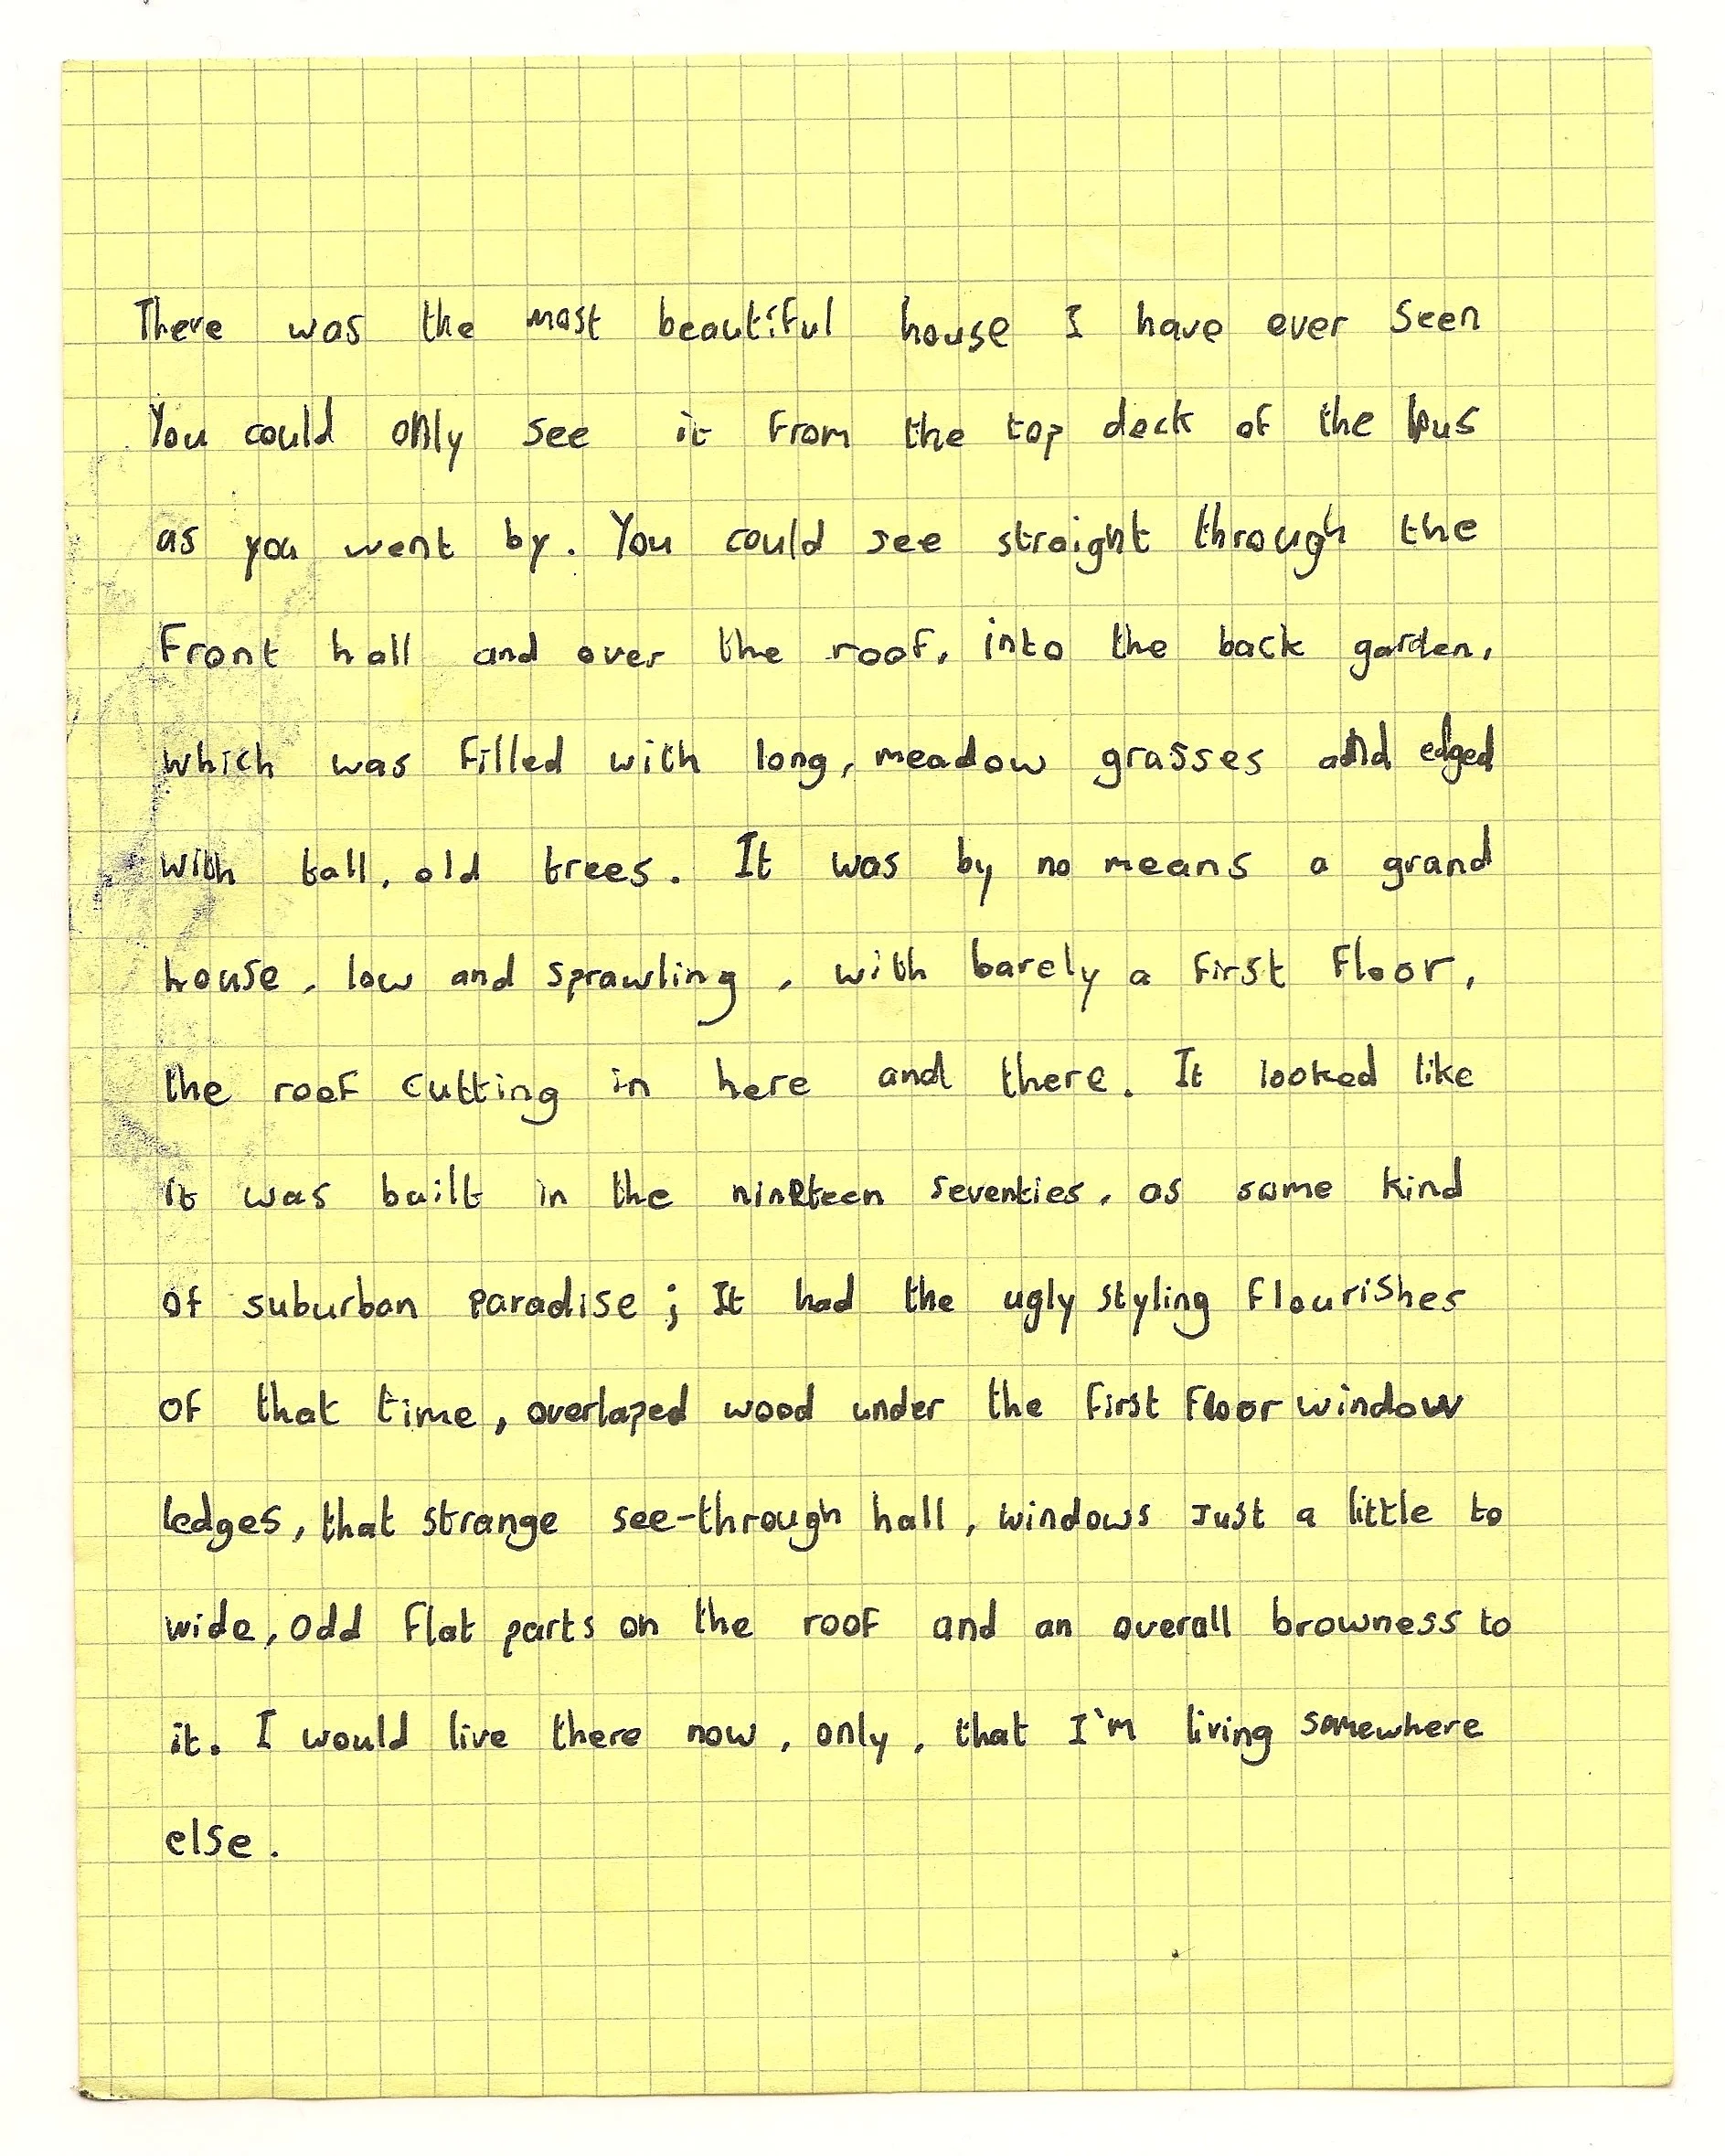 There was the most beautiful house I have ever seen
You could only see it from the top deck of the bus
as you went by. You could see straight through the
front hall and over the roof, into the back garden,
which was filled with long, meadow grasses and edged
with tall, old trees. It was by no means a grand
house, low and sprawling, with barely a first floor,
the roof cutting in here and there. It looked like
it was built in the nineteen seventies, as some kind
of suburban paradise; It had the ugly styling flourishes
of that time, overlaped wood under the first floor window
ledges, that strange see-through hall, windows just a little to
wide, odd flat parts on the roof and an overall browness to
it. I would live there now, only, that I'm living somewhere
else.